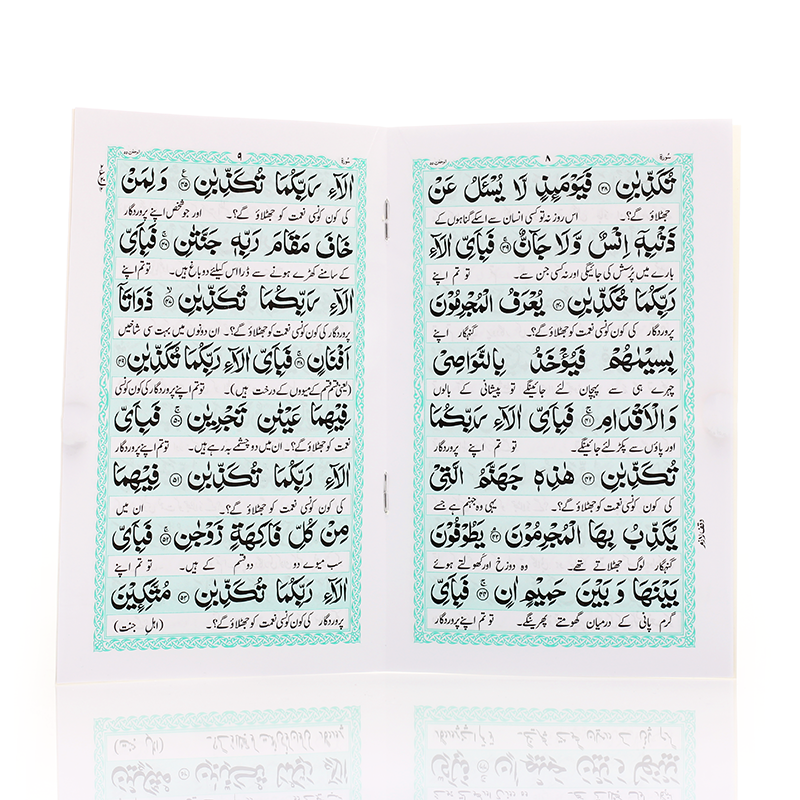 سُورة ٨ الرحمٰن ٥٥
تُكَذِّبٰنِ ﴿٣٨﴾ فَيَوْمَئِذٍ لَّا يُسْـَٔلُ عَنْ
جھٹلاؤ گے؟۔ اس روز نہ تو کسی انسان سے اسکے گناہوں کے
ذَنْۢبِهٖۤ اِنْسٌ وَّلَا جَآنٌّ ﴿٣٩﴾ فَبِاَىِّ اٰلَآءِ
بارے میں پُرسش کی جائیگی اور نہ کسی جن سے۔ تو تم اپنے
رَبِّكُمَا تُكَذِّبٰنِ ﴿٤٠﴾ يُعْرَفُ الْمُجْرِمُوْنَ
پروردگار کی کون کونسی نعمت کو جھٹلاؤ گے؟۔ گنہگار اپنے
بِسِيْمٰهُمْ فَيُؤْخَذُ بِالنَّوَاصِىْ
چہرے ہی سے پہچان لئے جائینگے تو پیشانی کے بالوں
وَالْاَقْدَامِ ﴿٤١﴾ فَبِاَىِّ اٰلَآءِ رَبِّكُمَا
اور پاؤں سے پکڑ لئے جائینگے۔ تو تم اپنے پروردگار
تُكَذِّبٰنِ ﴿٤٢﴾ هٰذِهٖ جَهَنَّمُ الَّتِىْ
کی کون کونسی نعمت کو جھٹلاؤ گے؟۔ یہی وہ جہنم ہے جسے
يُكَذِّبُ بِهَا الْمُجْرِمُوْنَ ﴿٤٣﴾ يَطُوْفُوْنَ
گنہگار لوگ جھٹلاتے تھے۔ وہ دوزخ اور کھولتے ہوئے
بَيْنَهَا وَبَيْنَ حَمِيْمٍ اٰنٍ ﴿٤٤﴾ فَبِاَىِّ
گرم پانی کے درمیان گھومتے پھرینگے۔ تو تم اپنے پروردگار
وقف لازم
سُورة ٩ الرحمٰن ٥٥
اٰلَآءِ رَبِّكُمَا تُكَذِّبٰنِ ﴿٤٥﴾ وَلِمَنْ
کی کون کونسی نعمت کو جھٹلاؤ گے؟۔ اور جو شخص اپنے پروردگار
خَافَ مَقَامَ رَبِّهٖ جَنَّتٰنِ ﴿٤٦﴾ فَبِاَىِّ
کے سامنے کھڑے ہونے سے ڈرا اس کیلئے دو باغ ہیں۔ تو تم اپنے
اٰلَآءِ رَبِّكُمَا تُكَذِّبٰنِ ﴿٤٧﴾ ذَوَاتَاۤ
پروردگار کی کون کونسی نعمت کو جھٹلاؤ گے؟۔ ان دونوں میں بہت سی شاخیں
اَفْنَانٍ ﴿٤٨﴾ فَبِاَىِّ اٰلَآءِ رَبِّكُمَا تُكَذِّبٰنِ ﴿٤٩﴾
(یعنی قسم قسم کے میووں کے درخت ہیں)۔ تو تم اپنے پروردگار کی کون کونسی
فِيْهِمَا عَيْنٰنِ تَجْرِيٰنِ ﴿٥٠﴾ فَبِاَىِّ
نعمت کو جھٹلاؤ گے؟۔ ان میں دو چشمے بہہ رہے ہیں۔ تو تم اپنے پروردگار
اٰلَآءِ رَبِّكُمَا تُكَذِّبٰنِ ﴿٥١﴾ فِيْهِمَا
کی کون کونسی نعمت کو جھٹلاؤ گے؟۔ ان میں
مِنْ كُلِّ فَاكِهَةٍ زَوْجٰنِ ﴿٥٢﴾ فَبِاَىِّ
سب میوے دو دو قسم کے ہیں۔ تو تم اپنے
اٰلَآءِ رَبِّكُمَا تُكَذِّبٰنِ ﴿٥٣﴾ مُتَّكِـِٕيْنَ
پروردگار کی کون کونسی نعمت کو جھٹلاؤ گے؟۔ (اہل جنت)